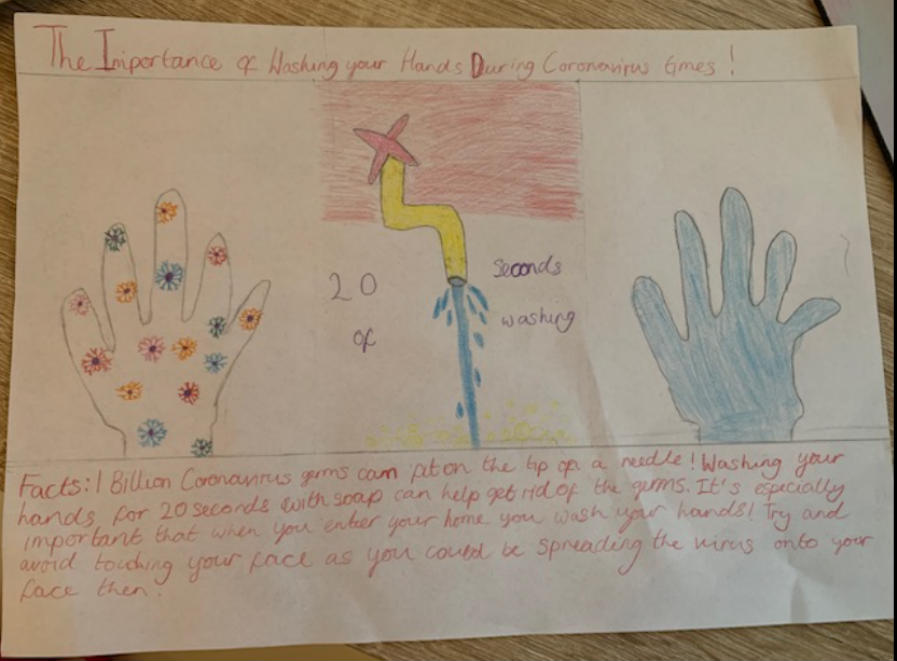 The Importance of Washing your Hands During Coronavirus times!
20 seconds
of washing
Facts: 1 Billion Coronavirus germs can fit on the tip of a needle! Washing your
hands for 20 seconds with soap can help get rid of the germs. It's especially
important that when you enter your home you wash your hands! Try and
avoid touching your face as you could be spreading the virus onto your
face then.